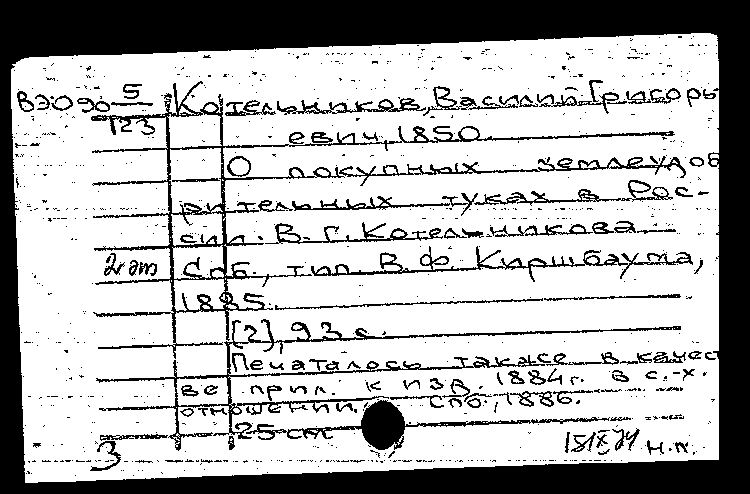 ВЭО 90 5/123 Котельников, Василий Григорь
евич, 1850
О покупных землеудоб
рительных туках в Рос-
сии. В. Г. Котельникова.
2й эт Спб., тип. В. Ф. Киршбаума,
1885.
[2], 93 с.
Печаталось также в качест
ве прил. к изд. 1884 г. в с.-х.
отношении. Спб., 1886.
25 cm
3 н.п.